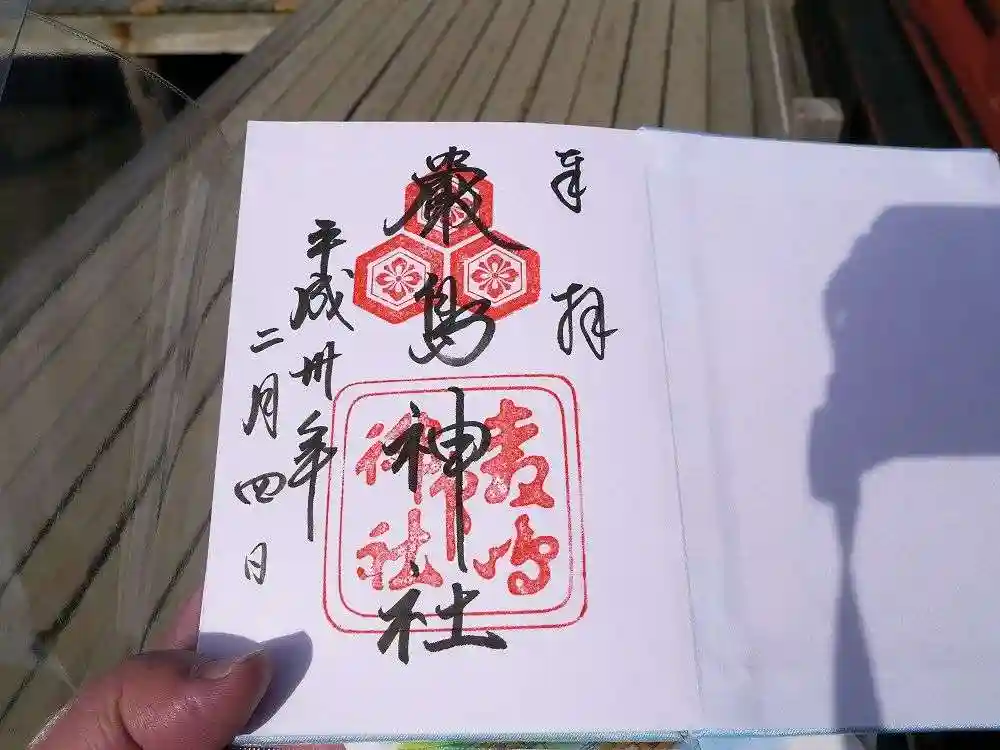 奉拝
厳島神社
嚴島神社
平成卅年
二月四日